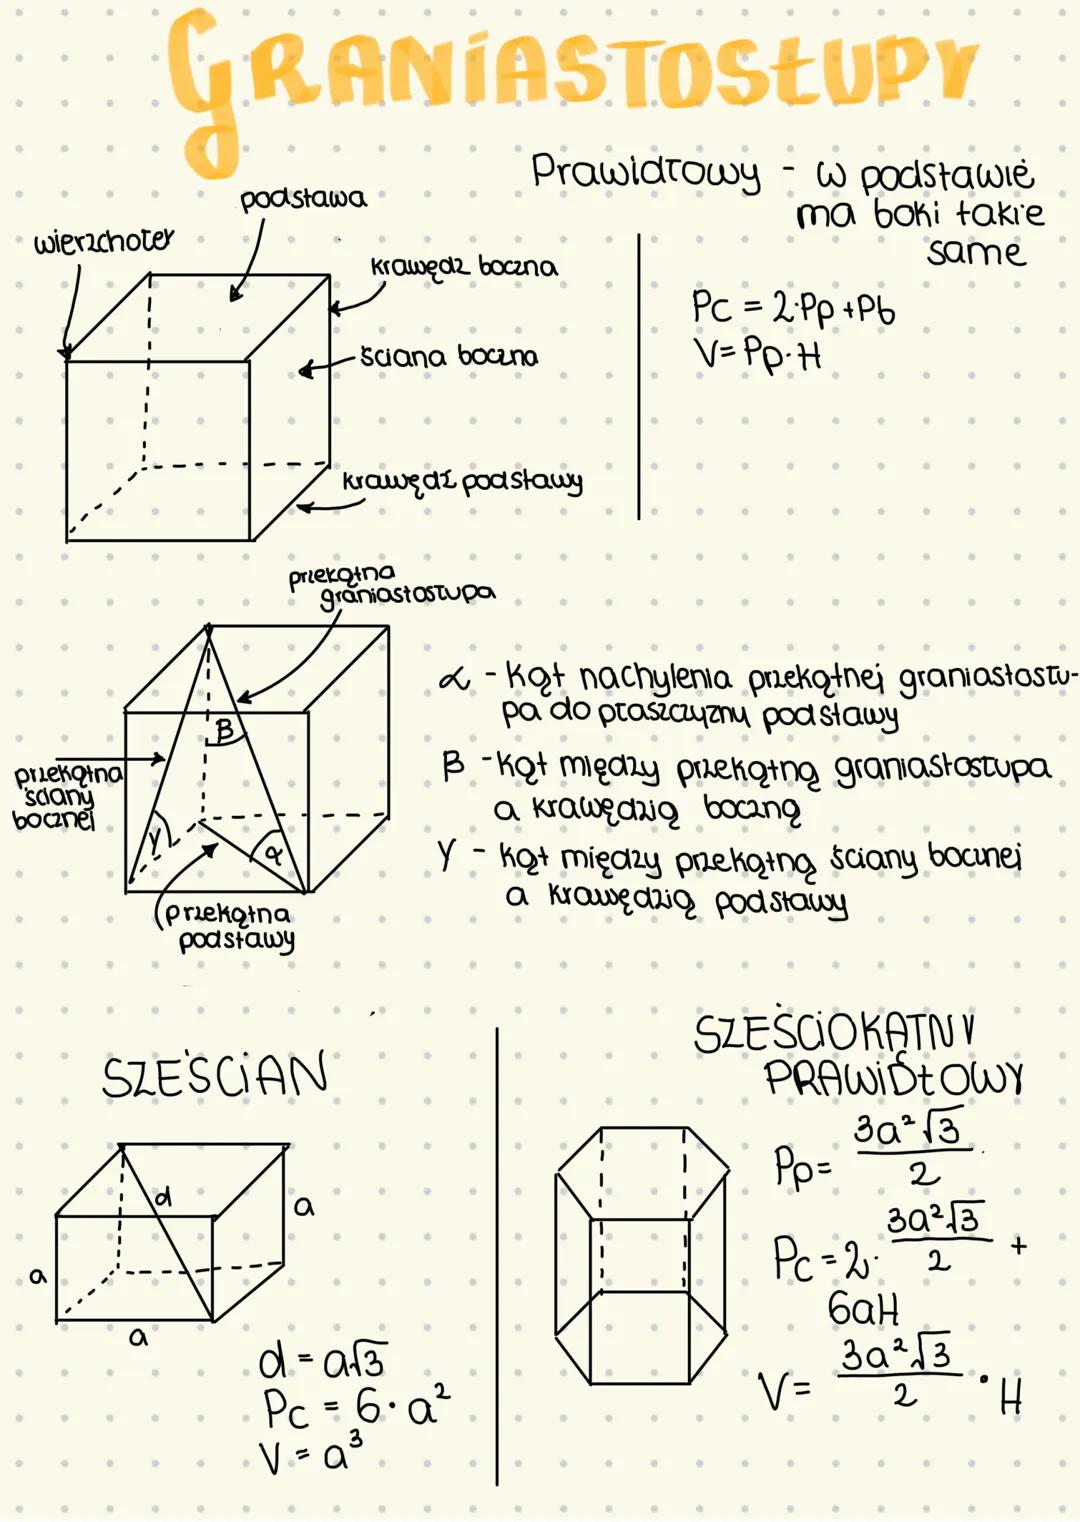 GRANIASTOSŁUPY
Prawidłowy - w podstawie
ma boki takie
same
podstawa
wierzchołek
krawędź boczna
ściana boczna
krawędź podstawy
Pc = 2·Pp + Pb
V = Pp·H
przekątna
graniastosłupa
przekątna
ściany
bocznej
β
γ
α
przekątna
podstawy
α - kąt nachylenia przekątnej graniastosłu-
pa do płaszczyzny podstawy
β - kąt między przekątną graniastosłupa
a krawędzią boczną
γ - kąt między przekątną ściany bocznej
a krawędzią podstawy
SZEŚCIAN
d
a
a
a
d = a√3
Pc = 6·a²
V = a³
SZEŚCIOKĄTNY
PRAWIDŁOWY
Pp = 3a²√3 / 2
Pc = 2· 3a²√3 / 2 +
6aH
V = 3a²√3 / 2 · H